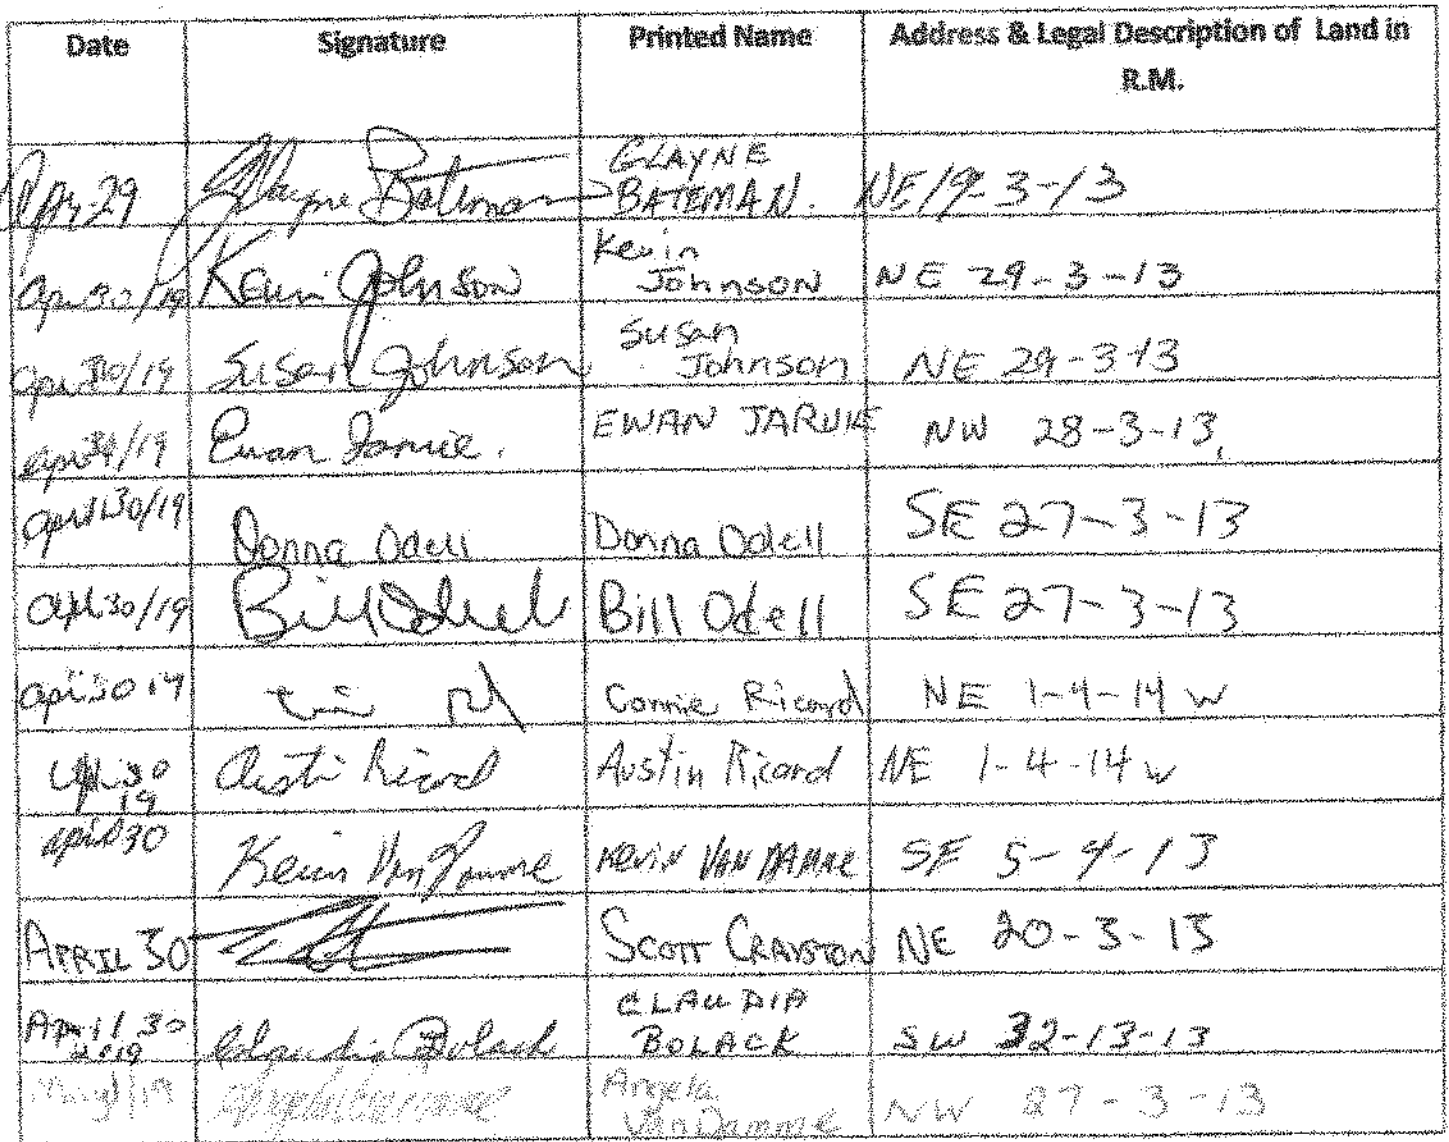 Date Signature Printed Name Address & Legal Description of Land in
R.M.
Apr 29 Glayne Bateman GLAYNE
BATEMAN. NE 19-3-13
Apr 30/19 Kevin Johnson Kevin
Johnson NE 29-3-13
Apr 30/19 Susan Johnson Susan
Johnson NE 29-3-13
Apr /19 Ewan Jarvie. EWAN JARVIE NW 28-3-13,
April 30/19 Donna Odell Donna Odell SE 27-3-13
Apl 30/19 Bill Odell Bill Odell SE 27-3-13
Apr 30 19 Connie Ricard NE 1-4-14 W
30
19 Austin Ricard Austin Ricard NE 1-4-14 W
April 30 Kevin VanDamme KEVIN VAN DAMME SE 5-4-13
APRIL 30 SCOTT CRAYSTON NE 20-3-13
April 30
2019 Claudia Bolack CLAUDIA
BOLACK SW 32-13-13
May 1/19 Angela VanDamme Angela
VanDamme NW 27-3-13